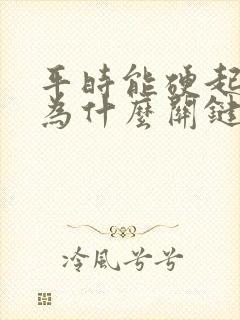 平時能硬起
為什麼關鍵
冷風兮兮